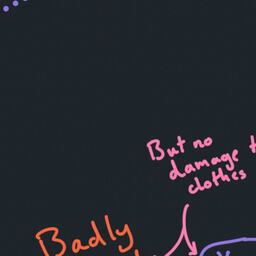 But no
damage t
clothes
Badly